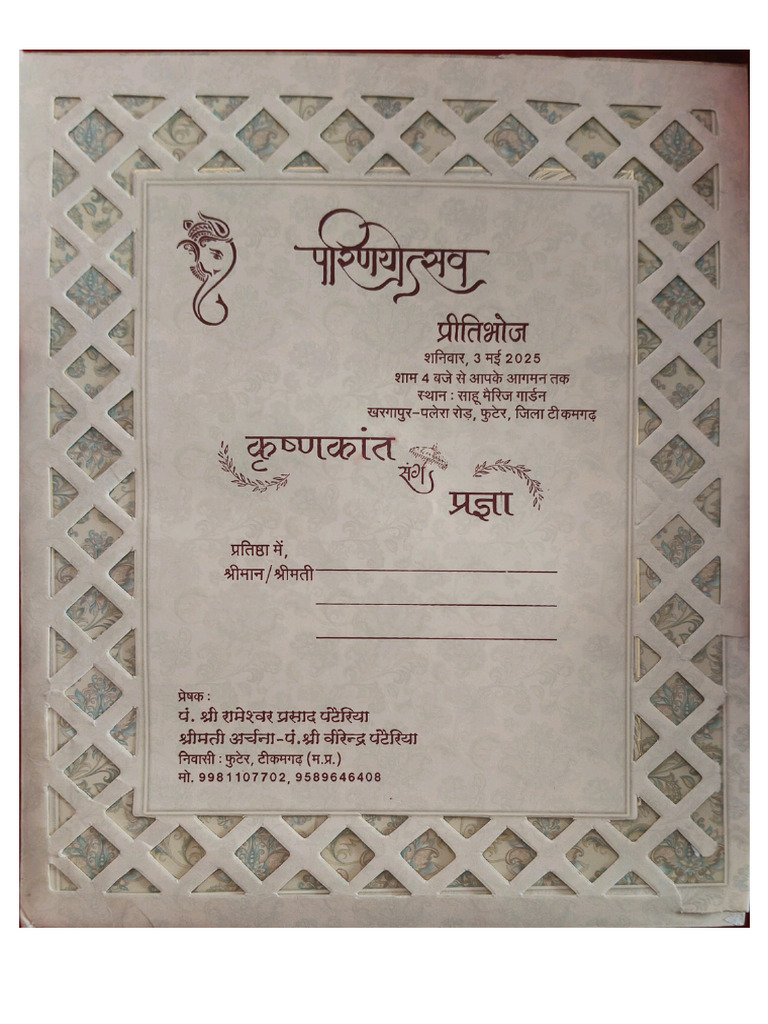 परिणयोत्सव
प्रीतिभोज
शनिवार, 3 मई 2025
शाम 4 बजे से आपके आगमन तक
स्थान : साहू मैरिज गार्डन
खरगापुर-पलेरा रोड़, फुटेर, जिला टीकमगढ़
कृष्णकांत
संग
प्रज्ञा
प्रतिष्ठा में,
श्रीमान/श्रीमती
प्रेषक :
पं. श्री रामेश्वर प्रसाद पंटेरिया
श्रीमती अर्चना-पं.श्री वीरेन्द्र पंटेरिया
निवासी : फुटेर, टीकमगढ़ (म.प्र.)
मो. 9981107702, 9589646408